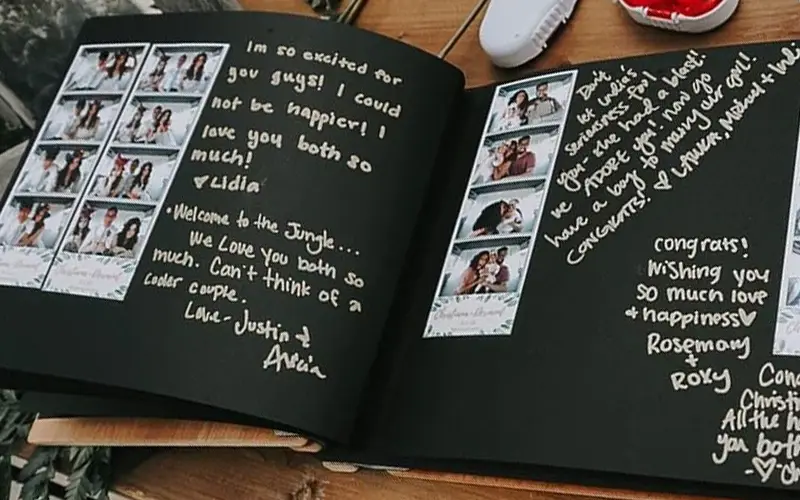 Im so excited for
you guys! I could
not be happier! I
love you both so
much!
♥Lidia
•Welcome to the Jungle...
We Love you both so
much. Can't think of a
cooler couple.
Love-Justin &
Alicia
Don't
let India's
seriousness fool
you- she had a blast!
we ADORE you! now go
have a boy to marry our girl!
CONGRATS! ♡ LAUREN, Michael + Indi
congrats!
Wishing you
so much love
+ happiness♡
Rosemary
+
Roxy
Cong
Christi
All the h
you both
-♡-Ch